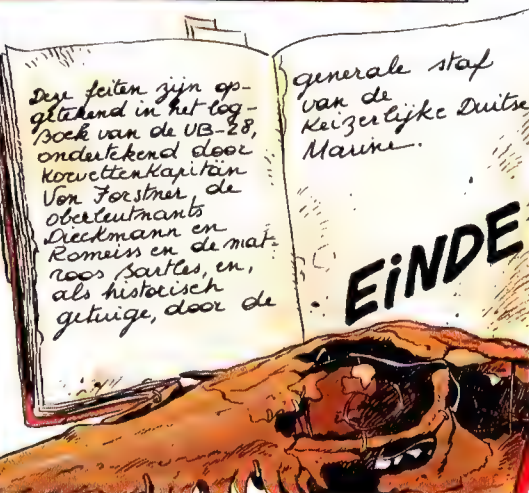 Deze feiten zijn op-
getekend in het log-
boek van de UB-28,
ondertekend door
Korvettenkapitän
Von Forstner, de
oberleutnants
Dieckmann en
Romeiss en de mat-
roos Bartles, en,
als historisch
getuige, door de
generale staf
van de
Keizerlijke Duitse
Marine.
EiNDE